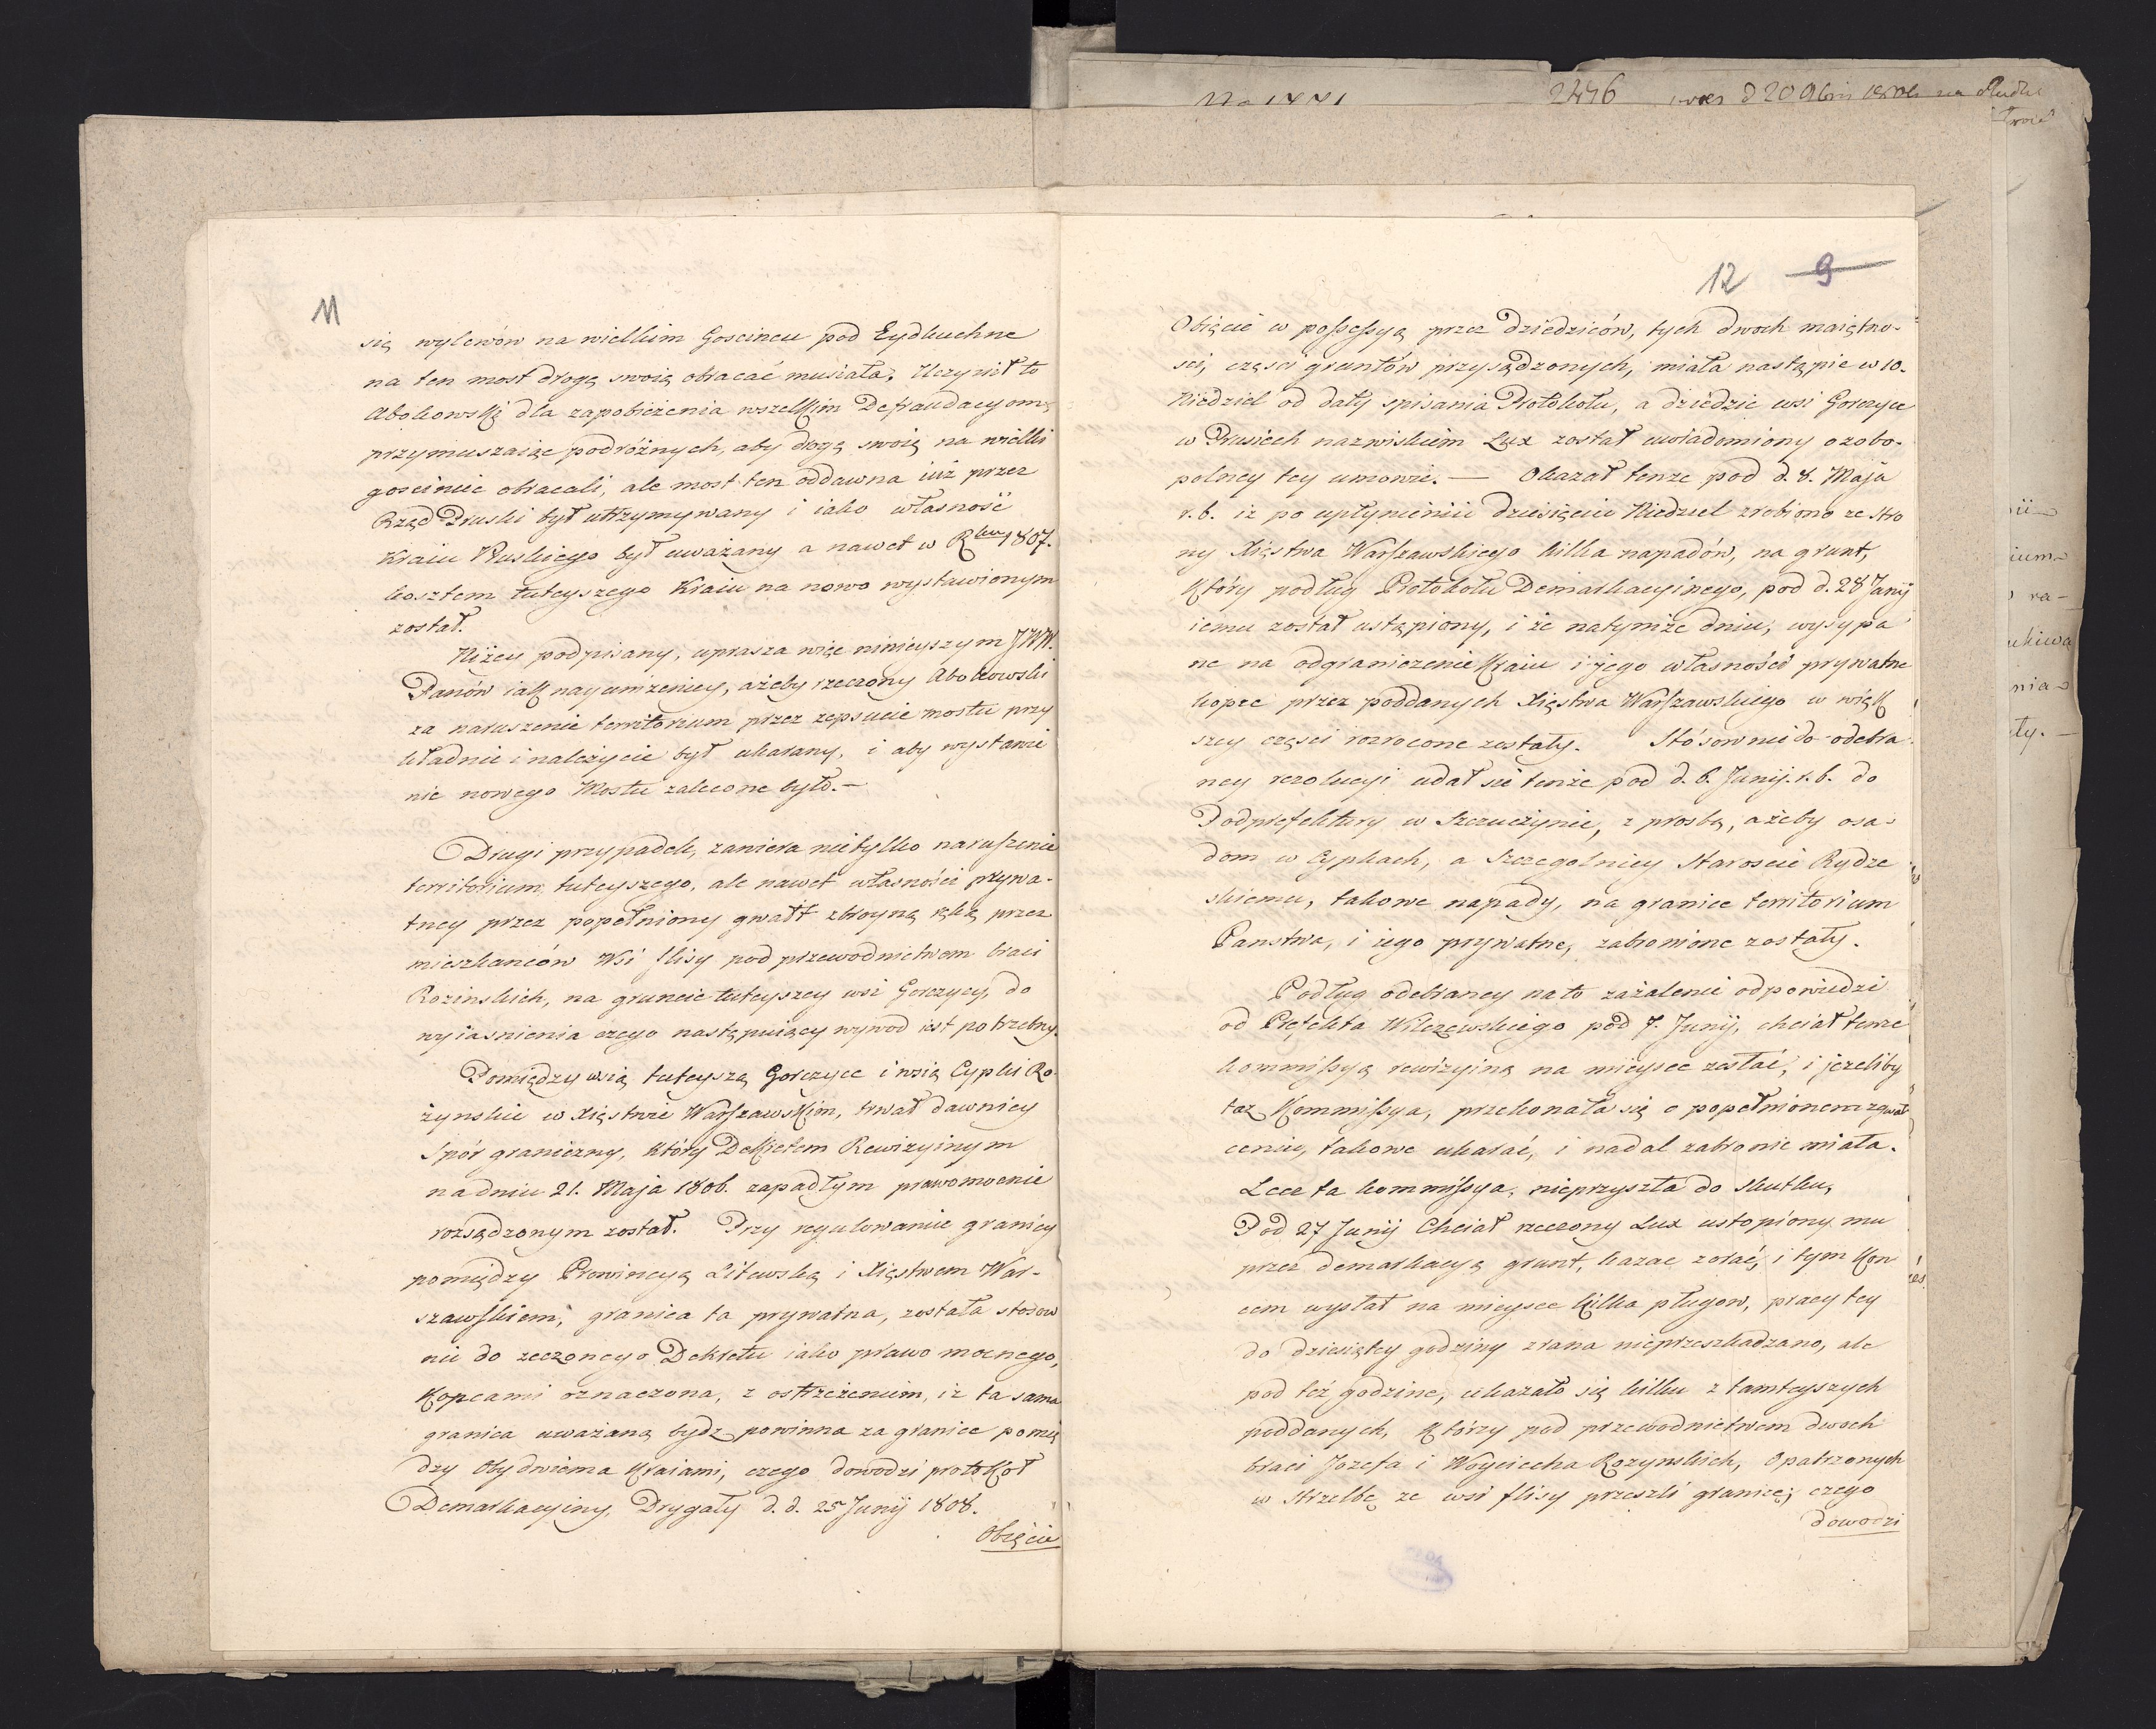 2446
11
się wylewów na wielkim Goscincu pod Eydkuchne
na ten most drogę swoię obracać musiała. Uczynił to
Abokowski dla zapobieżenia wszelkim Defraudacyom,
przymuszaiąc podróżnych, aby drogę swoię na wielki
gosciniec obracali, ale most ten oddawna iuż przez
Rząd Pruski był utrzymywany i iako własność
Kraiu Pruskiego był uważany a nawet w Rku 1807.
kosztem tuteyszego Kraiu na nowo wystawionym
został.
Niżey podpisany, uprasza więc ninieyszym JWW.
Panów iak nayuniżeniey, ażeby rzeczony Abokowski
za naruszenie territorium przez zepsucie mostu przy
kładnie i należycie był ukarany, i aby wystawie
nie nowego Mostu zalecone było.—
Drugi przypadek, zawiera nietylko naruszenie
territorium tuteyszego, ale nawet własności prywa-
tney przez popełniony gwałt zbroyną ręką przez
mieszkanców Wsi flisy pod przewodnictwem braci
Rozinskich, na gruncie tuteyszey wsi Gorczycy, do
wyiasnienia czego następuiący wywod iest potrzebny.
Pomiędzy wsią tuteyszą Gorczyce i wsią Cypki Ro-
żynskie w Xięstwie Warszawskim, trwał dawniey
Spór graniczny, który Dekretem Rewizyinym
na dniu 21. Maja 1806. zapadłym prawomocnie
rozsądzonym został. Przy regulowanie granicy
pomiędzy Prowincyą Litewską i Xięstwem War-
szawskiem, granica ta prywatna, została stosow
nie do rzeczonego Dekretu iako prawo mocnego,
Kopcami oznaczona, z ostrzeżeniem, iż ta sama
granica uważaną bydz powinna za granice pomię
dzy Obydwiema Kraiami, czego dowodzi protokoł
Demarkacyiny, Drygały d. d. 25 Junij 1808.
Obięcie
12 9
Obięcie w possessyą przez dziedziców, tych dwoch maiętno-
sci, częsci gruntów przysądzonych, miała nastąpic w 10.
Niedziel od daty spisania Protokołu, a dziedzic wsi Gorczyce
w Prusiech nazwiskiem Lux został uwiadomiony o zobo-
polney tey umowie. — Okazał tenze pod d. 8. Maja
r. b. iz po upłynieniu dziesięciu Niedziel zrobiono ze stro
ny Xięstwa Warszawskiego kilka napadów, na grunt,
Który podług Protokołu Demarkacyinego, pod d. 28 Junij
iemu został ustąpiony, i że natymże dniu, wysypa
ne na odgraniczenie Kraiu i jego własności prywatne
kopce przez poddanych Xięstwa Warszawskiego w więk
szey częsci rozrocone zostały. Stósownie do odebra
ney rezolucyi udał sie tenże pod d. 6. Junij. r. b. do
Podprefektury w Szczuczynie, z prosbą, ażeby osa-
dom w Cypkach, a Szczegolniey Staroscie Rydze
skiemu, takowe napady, na granice territorium
Panstwa, i iego prywatne, zabronione zostały.
Podług odebraney na to zażalenie odpowiedzi
od Prefekta Wilczewskiego pod 7. Junij, chciał tenze
kommissyą rewizyiną na mieysce zesłać, i jezeliby
taz Kommissya, przekonała się o popełnionem zgwał
ceniu, takowe ukarać, i nadal zabronic miała.
Lecz ta kommissya, nieprzyszła do skutku,
Pod 27 Junij Chciał rzeczony Lux ustopiony mu
przez demarkacyą grunt, kazac zorać, i tym Kon
cem wysłał na mieysce kilka pługow, pracy tey
do dziesiątey godziny zrana nieprzeszkadzano, ale
pod też godzine, ukazało się kilku z tamteyszych
poddanych, którzy pod przewodnictwem dwoch
braci Jozefa i Woyciecha Rozynskich, Opatrzonych
w strzelbę ze wsi flisy przeszli granicę; czego
dowodzi